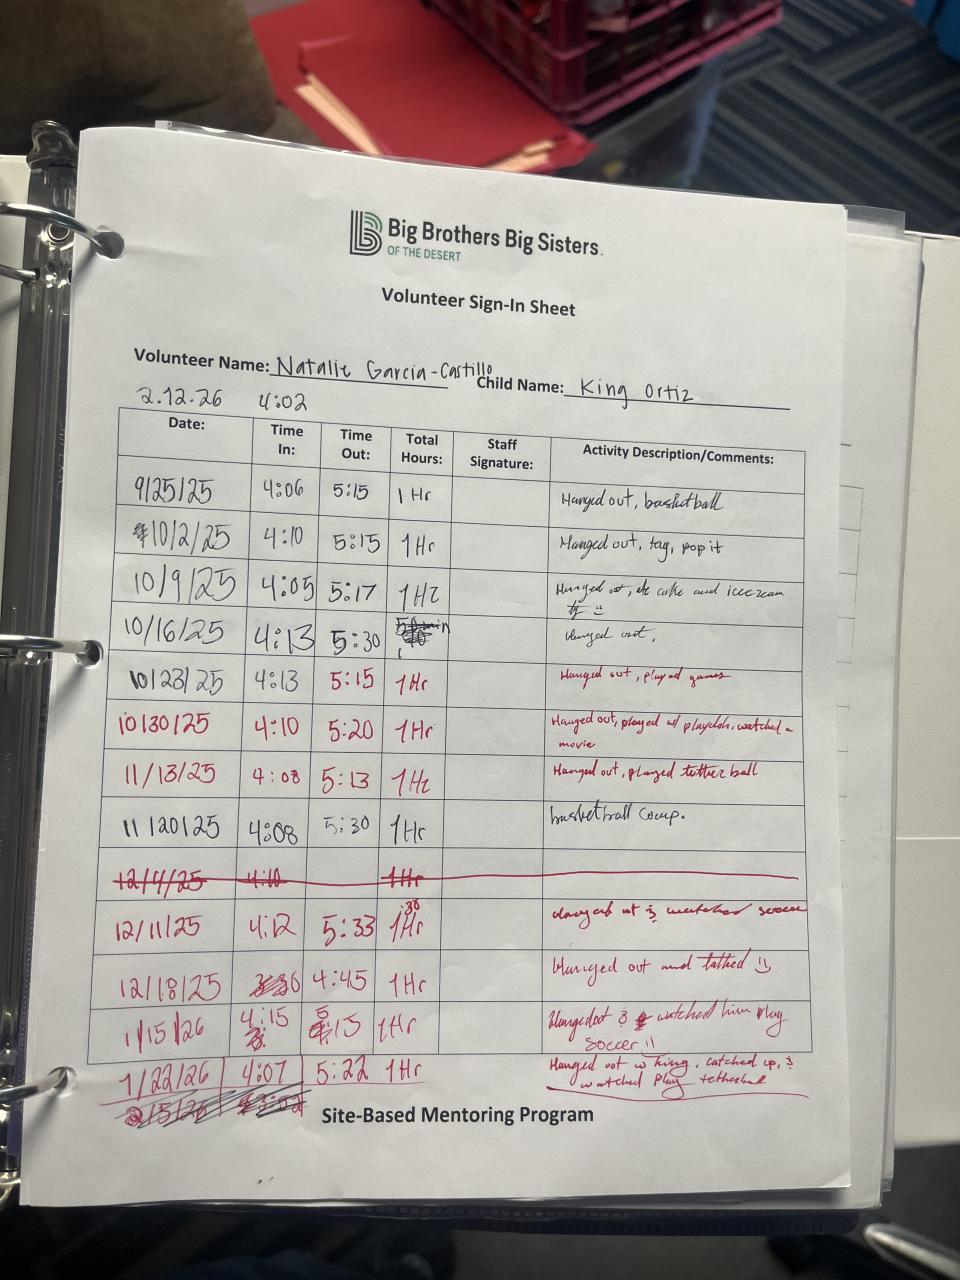 Big Brothers Big Sisters.
OF THE DESERT
Volunteer Sign-In Sheet
Volunteer Name: Natalie Garcia-Castillo Child Name: King Ortiz
2.12.26 4:02
Date: Time In: Time Out: Total Hours: Staff Signature: Activity Description/Comments:
9/25/25 4:06 5:15 1 Hr Hanged out, basketball
10/2/25 4:10 5:15 1Hr Hanged out, tag, pop it
10/9/25 4:05 5:17 1Hr Hanged out, ate cake and icecream
10/16/25 4:13 5:30 Hanged out,
10/23/25 4:13 5:15 1Hr Hanged out, played games
10/30/25 4:10 5:20 1Hr Hanged out, played w/ playdoh, watched a
movie
11/13/25 4:08 5:13 1Hr Hanged out, played tether ball
11/20/25 4:08 5:30 1Hr basketball comp.
12/4/25 4:10 1Hr
12/11/25 4:12 5:33 1Hr 30 Hanged out & watched soccer
12/18/25 4:45 1Hr Hanged out and talked :)
1/15/26 4:15 5:15 1Hr Hanged out & watched him play
soccer :)
1/22/26 4:07 5:22 1Hr Hanged out w King, catched up, &
watched play tetherball
2/5/26
Site-Based Mentoring Program